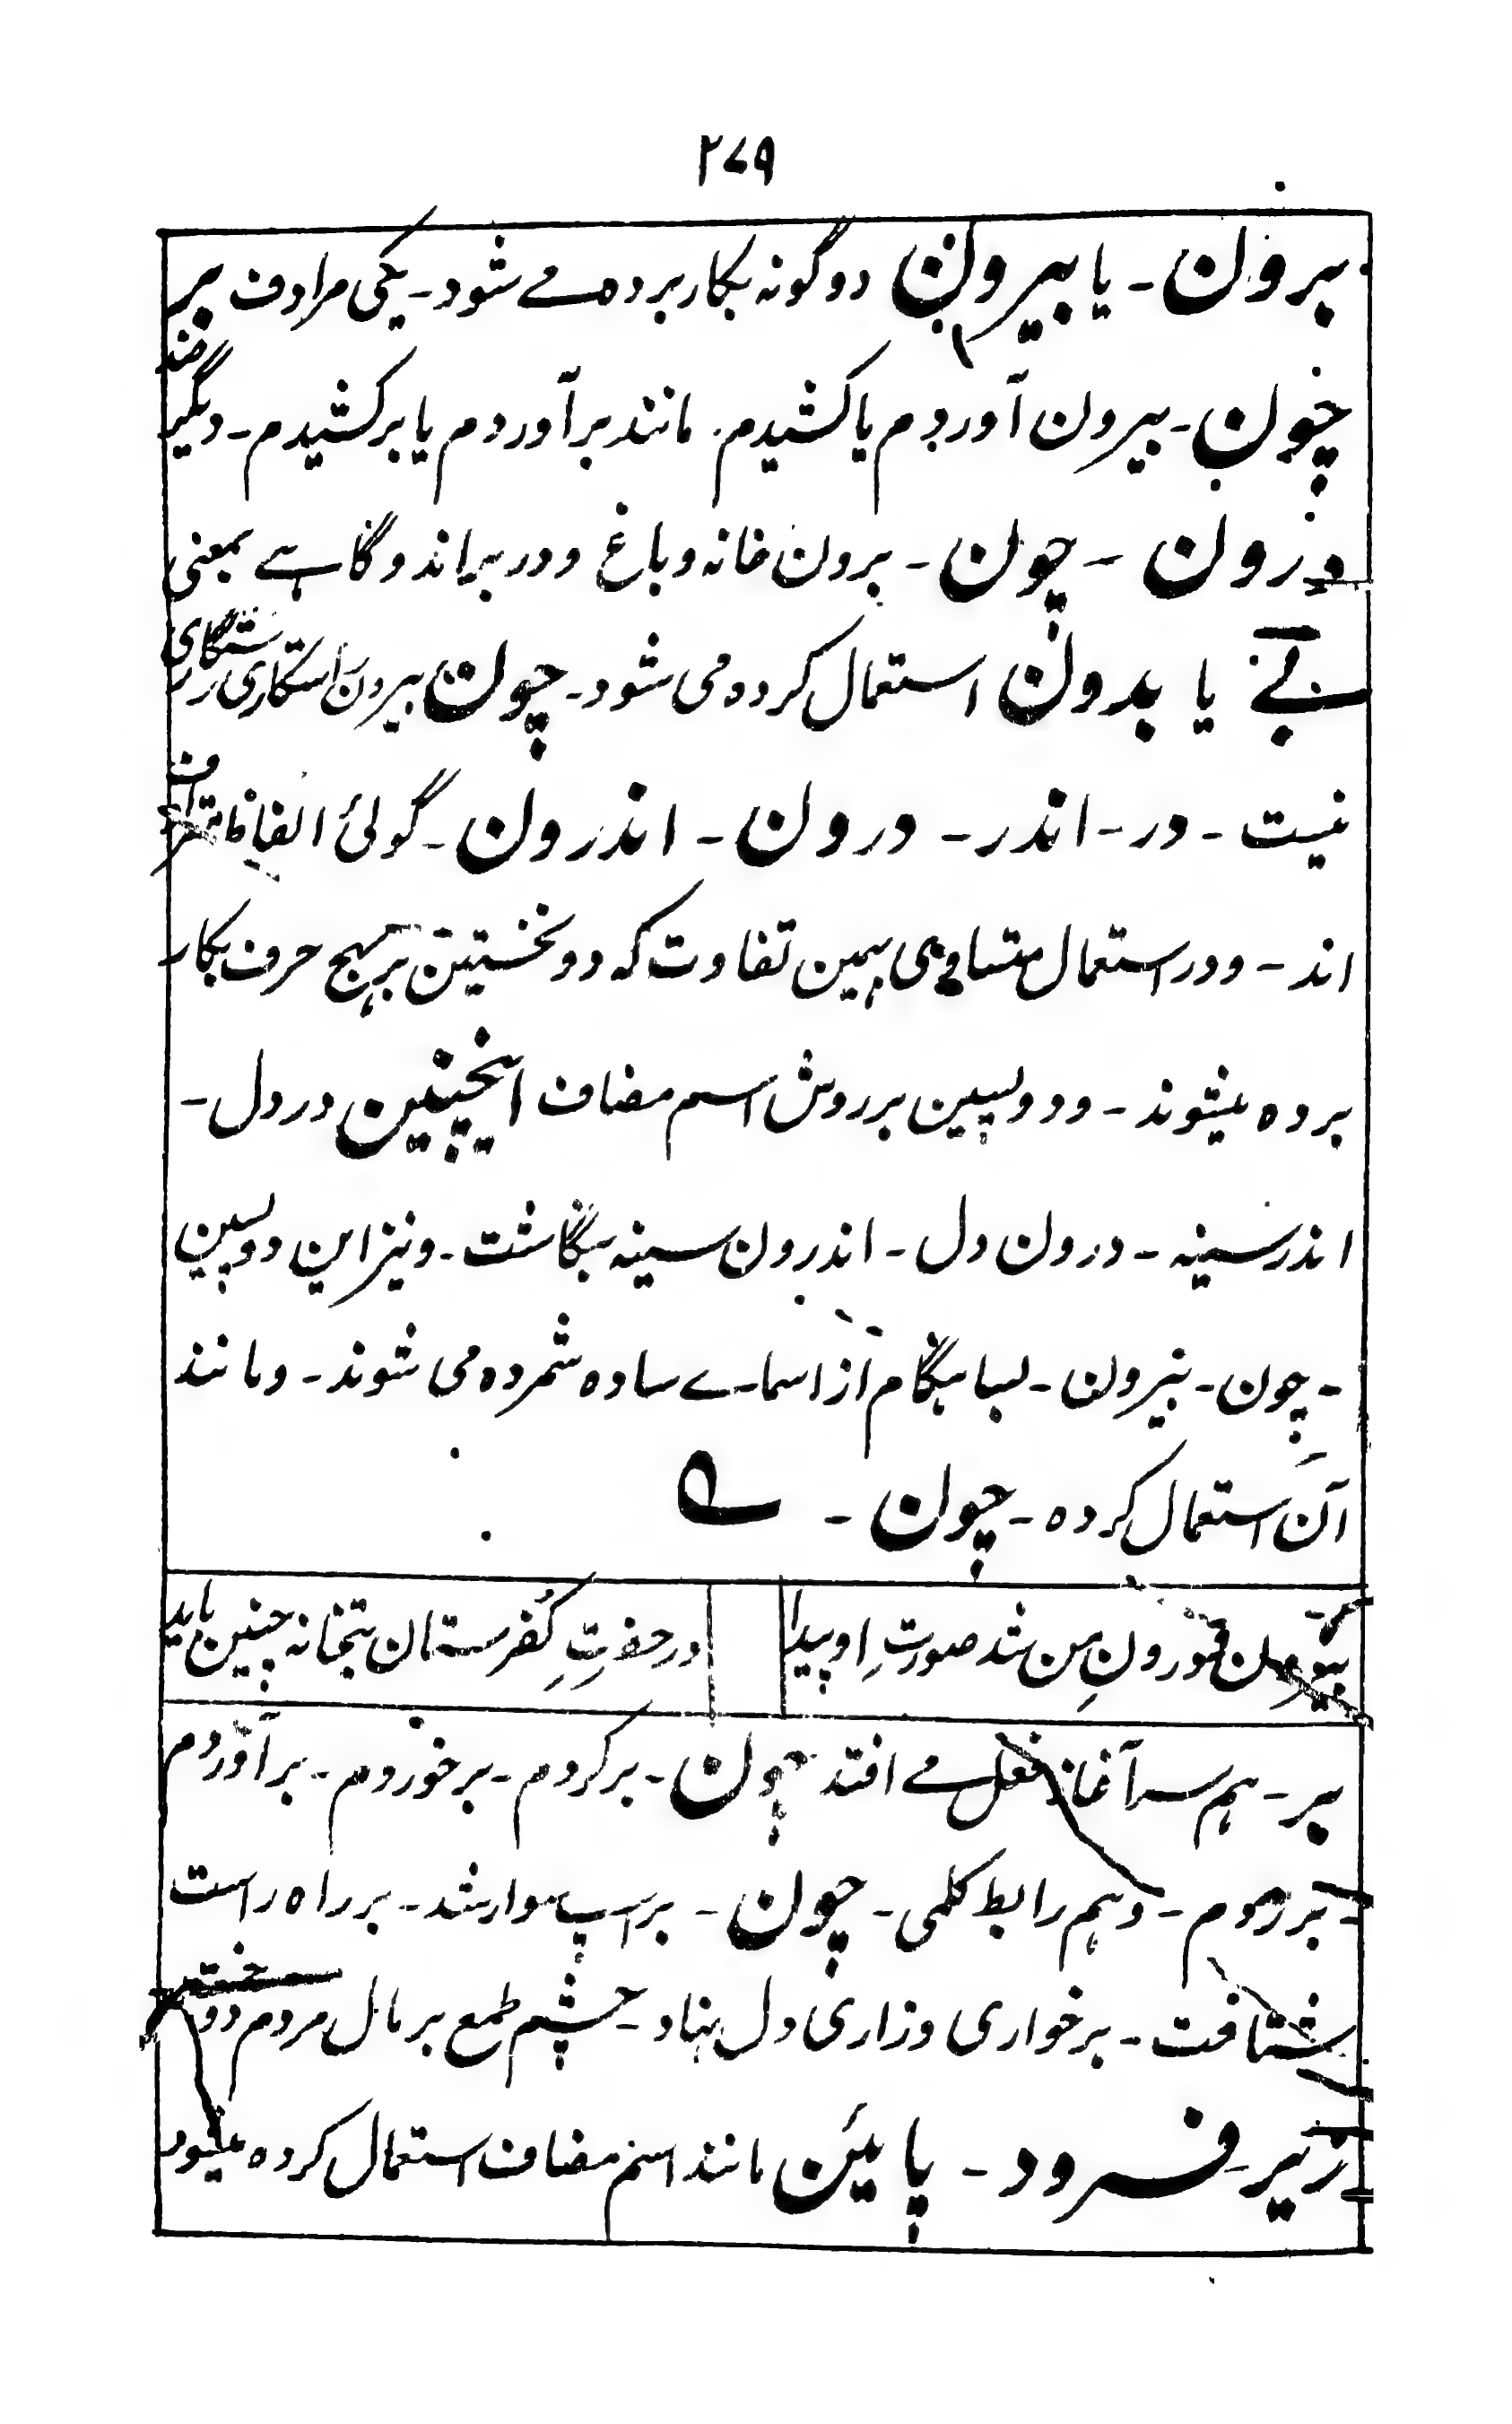 ۲۷۹
برون - یا بیرون دو گونه بکار برده مے شود - یکی مرادف بر
چون - بیرون آوردم یا کشیدم - مانند برآوردم یا برکشیدم - دیگر ضد
درون - چون - برون خانه و باغ و در بماند و گاہے بمعنی
بے یا بدون استعمال کرده می شود - چون بیرون راستکاری رستگاری
نیست - در - اندر - درون - اندرون - گوئی الفاظ مترادف
اند - و در استعمال متساوی همین تفاوت که دو نخستین بر نهج حرف بکار
برده میشوند - و دو پسین بر روش اسم مضاف اینچنین در دل -
اندر سینه - درون دل - اندرون سینه بنگاشت - و نیز این دو پسین
- چون - بیرون - بسا هنگام از اسماے ساده شمرده می شوند - و مانند
آن استعمال کرده - چون - ے
بیرون و درونِ من شد صورتِ او پیدا در حضرتِ کُفرستان بتخانه چنین باید
بر - هم سرآغاز فعل مے افتد چون - برکردم - برخوردم - برآوردم
- بر زدم - و هم رابط کلمی - چون - بر اسپ سوار شد - بر راه راست
شتافت - بر خواری و زاری دل نهاد - چشم طمع بر مال مردم دوخت
زیر - فرود - پائین مانند اسم مضاف استعمال کرده میشود